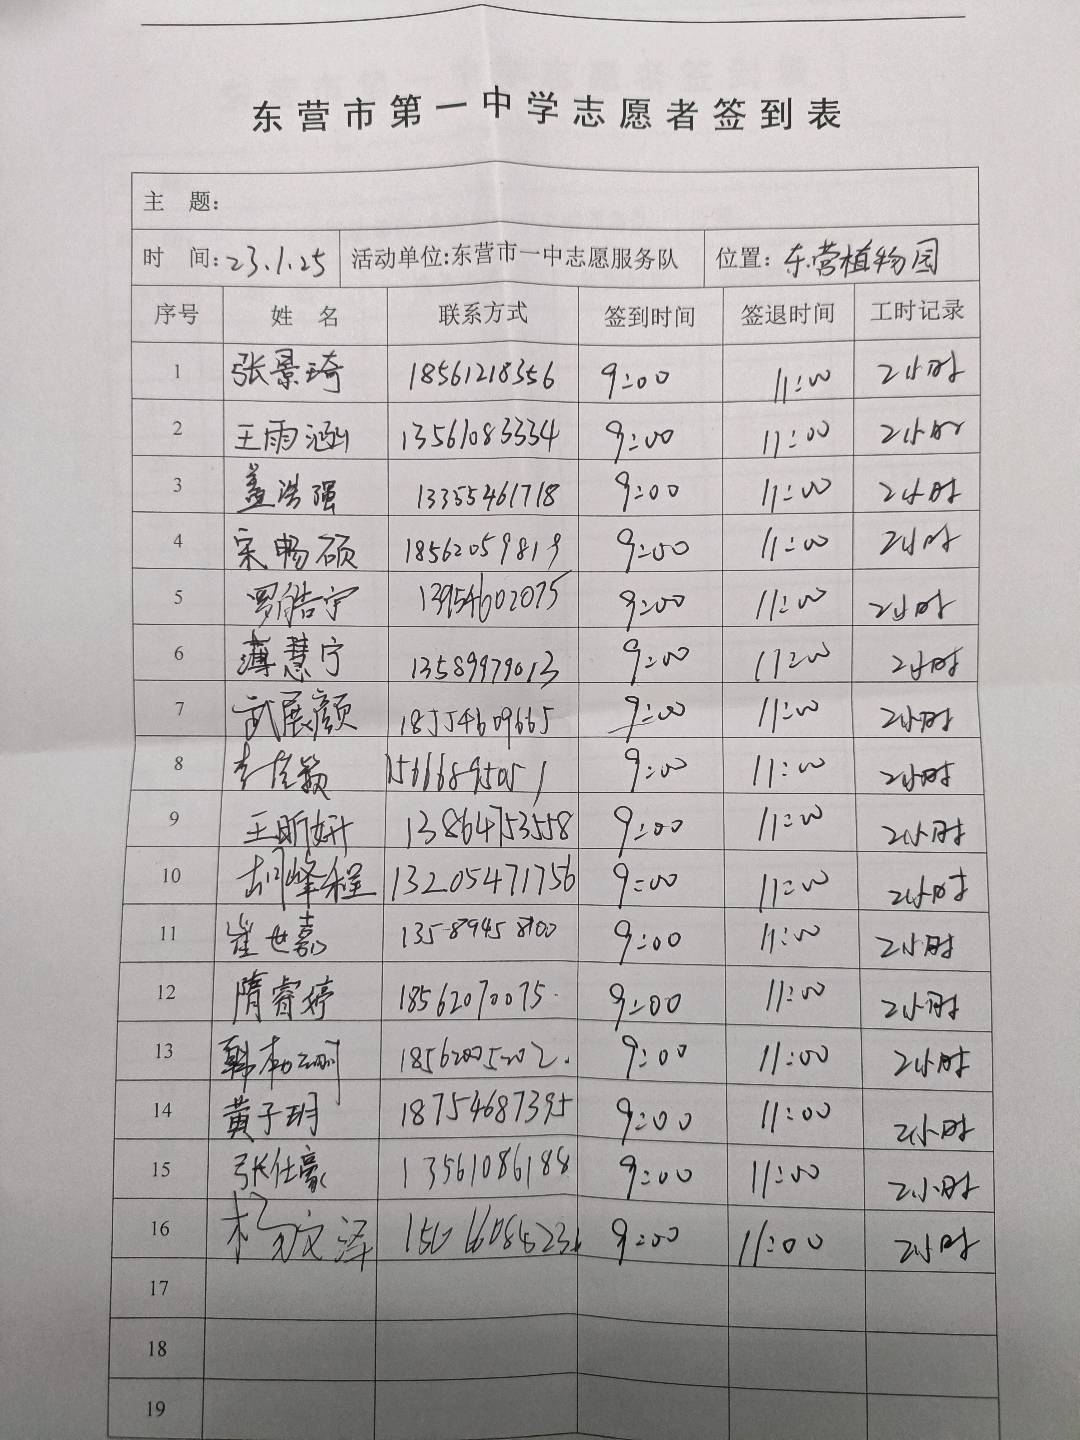 东营市第一中学志愿者签到表
主 题：
时 间：23.1.25 活动单位：东营市一中志愿服务队 位置：东营植物园
序号 姓 名 联系方式 签到时间 签退时间 工时记录
1 张景琦 18561218356 9:00 11:00 2小时
2 王雨涵 13561083334 9:00 11:00 2小时
3 盖浩强 13355461718 9:00 11:00 2小时
4 宋畅硕 18562059819 9:00 11:00 2小时
5 罗皓宇 13954602075 9:00 11:00 2小时
6 薄慧宁 13589979013 9:00 11:00 2小时
7 武展颜 18554609665 9:00 11:00 2小时
8 李佳颖 15666895051 9:00 11:00 2小时
9 王昕妍 13864753558 9:00 11:00 2小时
10 胡峰程 13205471756 9:00 11:00 2小时
11 崔世嘉 13589458100 9:00 11:00 2小时
12 隋睿婷 18562070075 9:00 11:00 2小时
13 18562005202 9:00 11:00 2小时
14 黄子玥 18754687395 9:00 11:00 2小时
15 张仕豪 13561086188 9:00 11:00 2小时
16 杨文泽 9:00 11:00 2小时
17
18
19